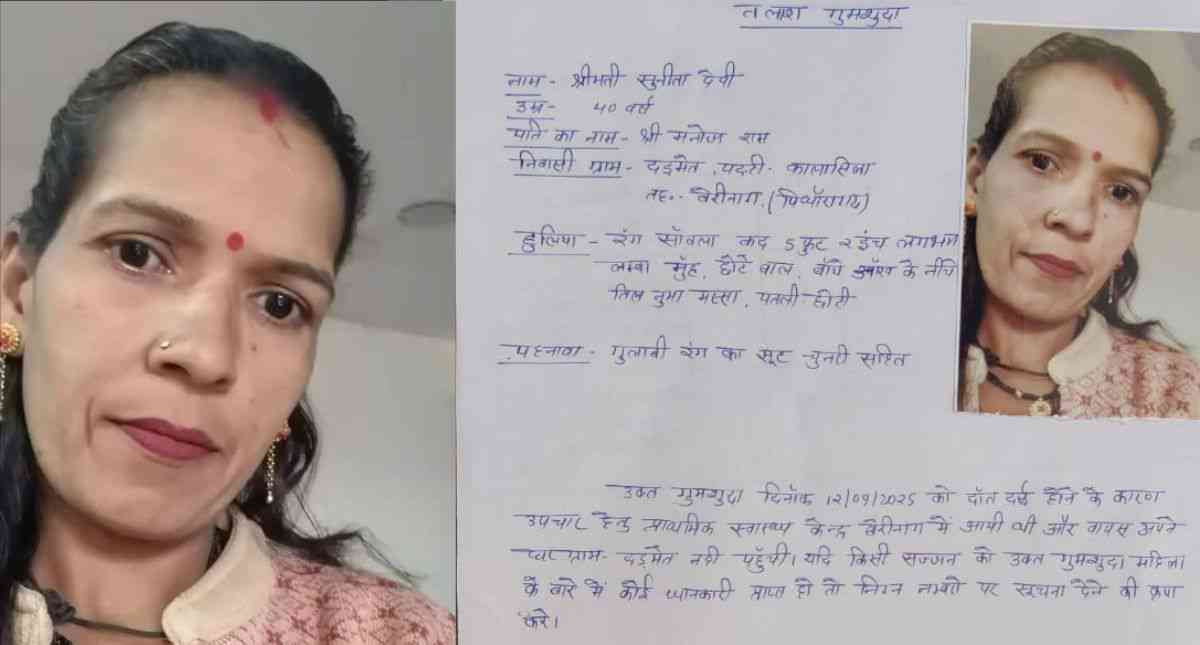 तलाश गुमशुदा
नाम - श्रीमती सुनीता देवी
उम्र - 40 वर्ष
पति का नाम - श्री मनोज राम
निवासी ग्राम - दड़मेत, पट्टी - कालासिला
तह०- बेरीनाग, (पिथौरागढ़)
हुलिया - रंग साँवला कद 5 फुट २ इंच लगभग
लम्बा मुँह, छोटे बाल, बाँये आँख के नीचे
तिल नुमा मस्सा, पतली छोटी
पहनावा - गुलाबी रंग का सूट चुनरी सहित
उक्त गुमशुदा दिनाँक 12/09/2025 को दाँत दर्द होने के कारण
उपचार हेतु प्राथमिक स्वास्थ्य केन्द्र बेरीनाग में आयी थी और वापस अपने
घर ग्राम - दड़मेत नही पहुँची। यदि किसी सज्जन को उक्त गुमशुदा महिला
के बारे में कोई जानकारी प्राप्त हो तो निम्न नम्बरो पर सूचना देने की कृपा
करे।